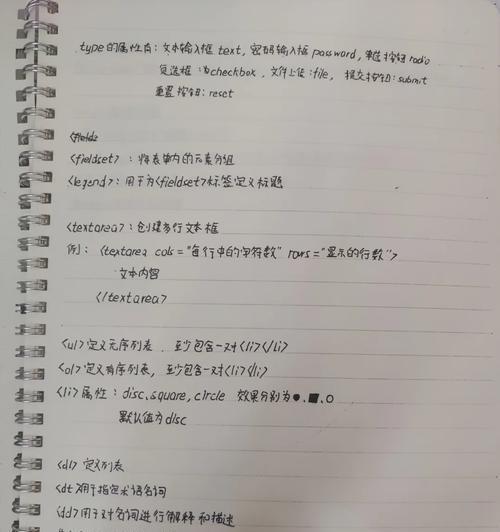 type的属性有：文本输入框 text，密码输入框 password，单选按钮 radio
复选框：为checkbox，文件上传：file，提交按钮：submit
重置按钮：reset
<field>
<fieldset>：将表单内的元素分组
<legend>：用于为<fieldset>标签定义标题
<textarea>：创建多行文本框
例：<textarea cols="每行中的字符数" rows="显示的行数">
文本内容
</textarea>
<ul>定义无序列表 至少包含一对<li></li>
<ol>定义有序列表，至少包含一对<li></li>
<li>属性：disc, square, circle 效果分别为●.■.○
默认值为disc
<dl> 定义列表
<dt>用于指定术语名词
<dd>用于对名词进行解释和描述